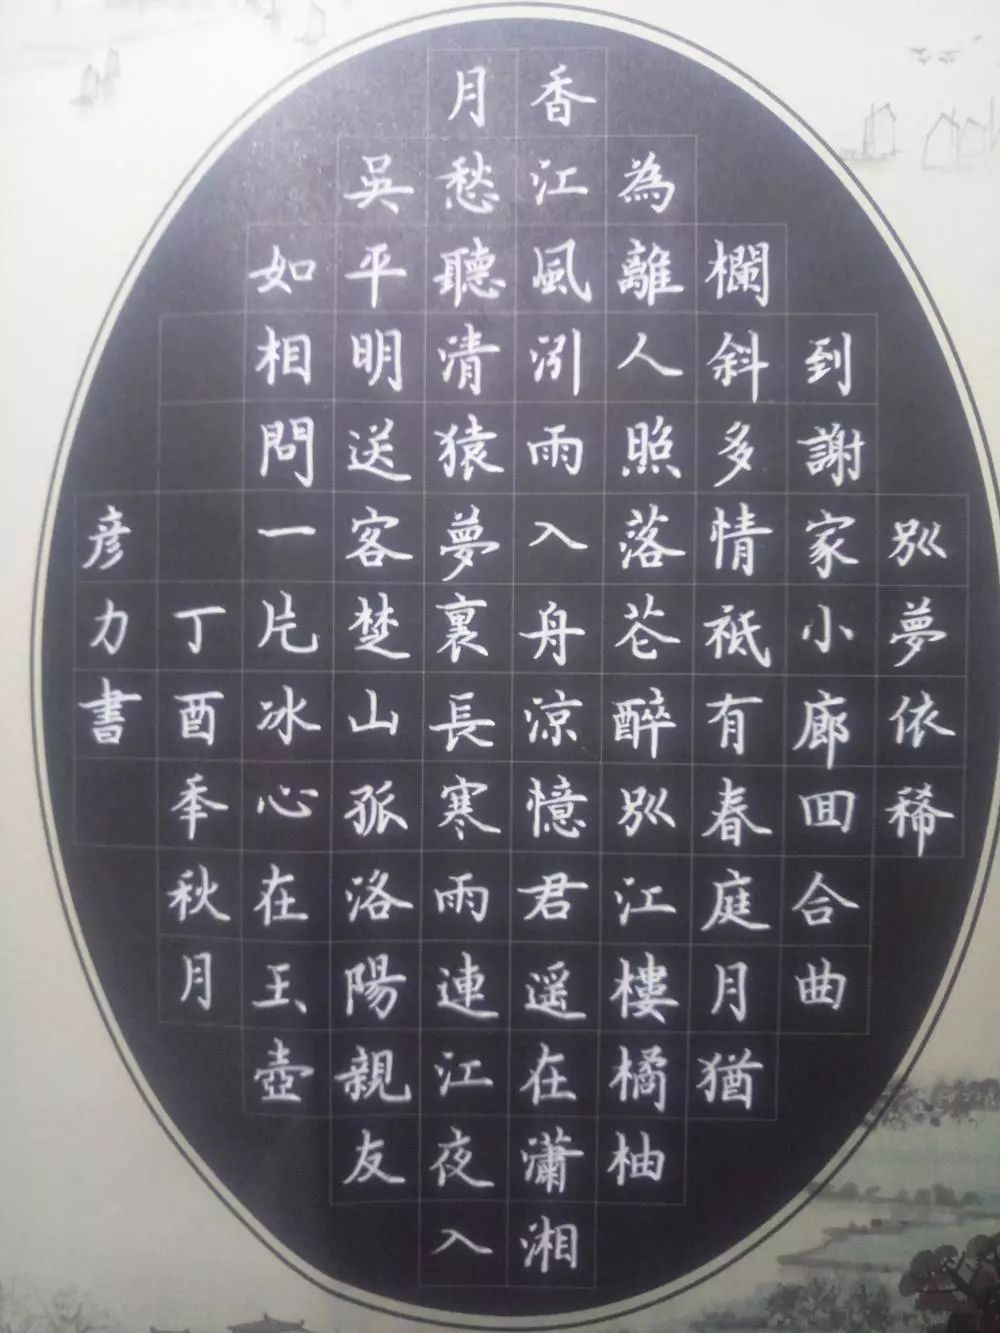 別夢依稀
到謝家小廊囬合曲
欄斜多情祗有春庭月猶
為離人照落花醉別江樓橘柚
香江風引雨入舟涼憶君遥在瀟湘
月愁聽清猿夢裏長寒雨連江夜入
吳平明送客楚山孤洛陽親友
如相問一片冰心在玉壺
丁酉秊秋月
彦力書